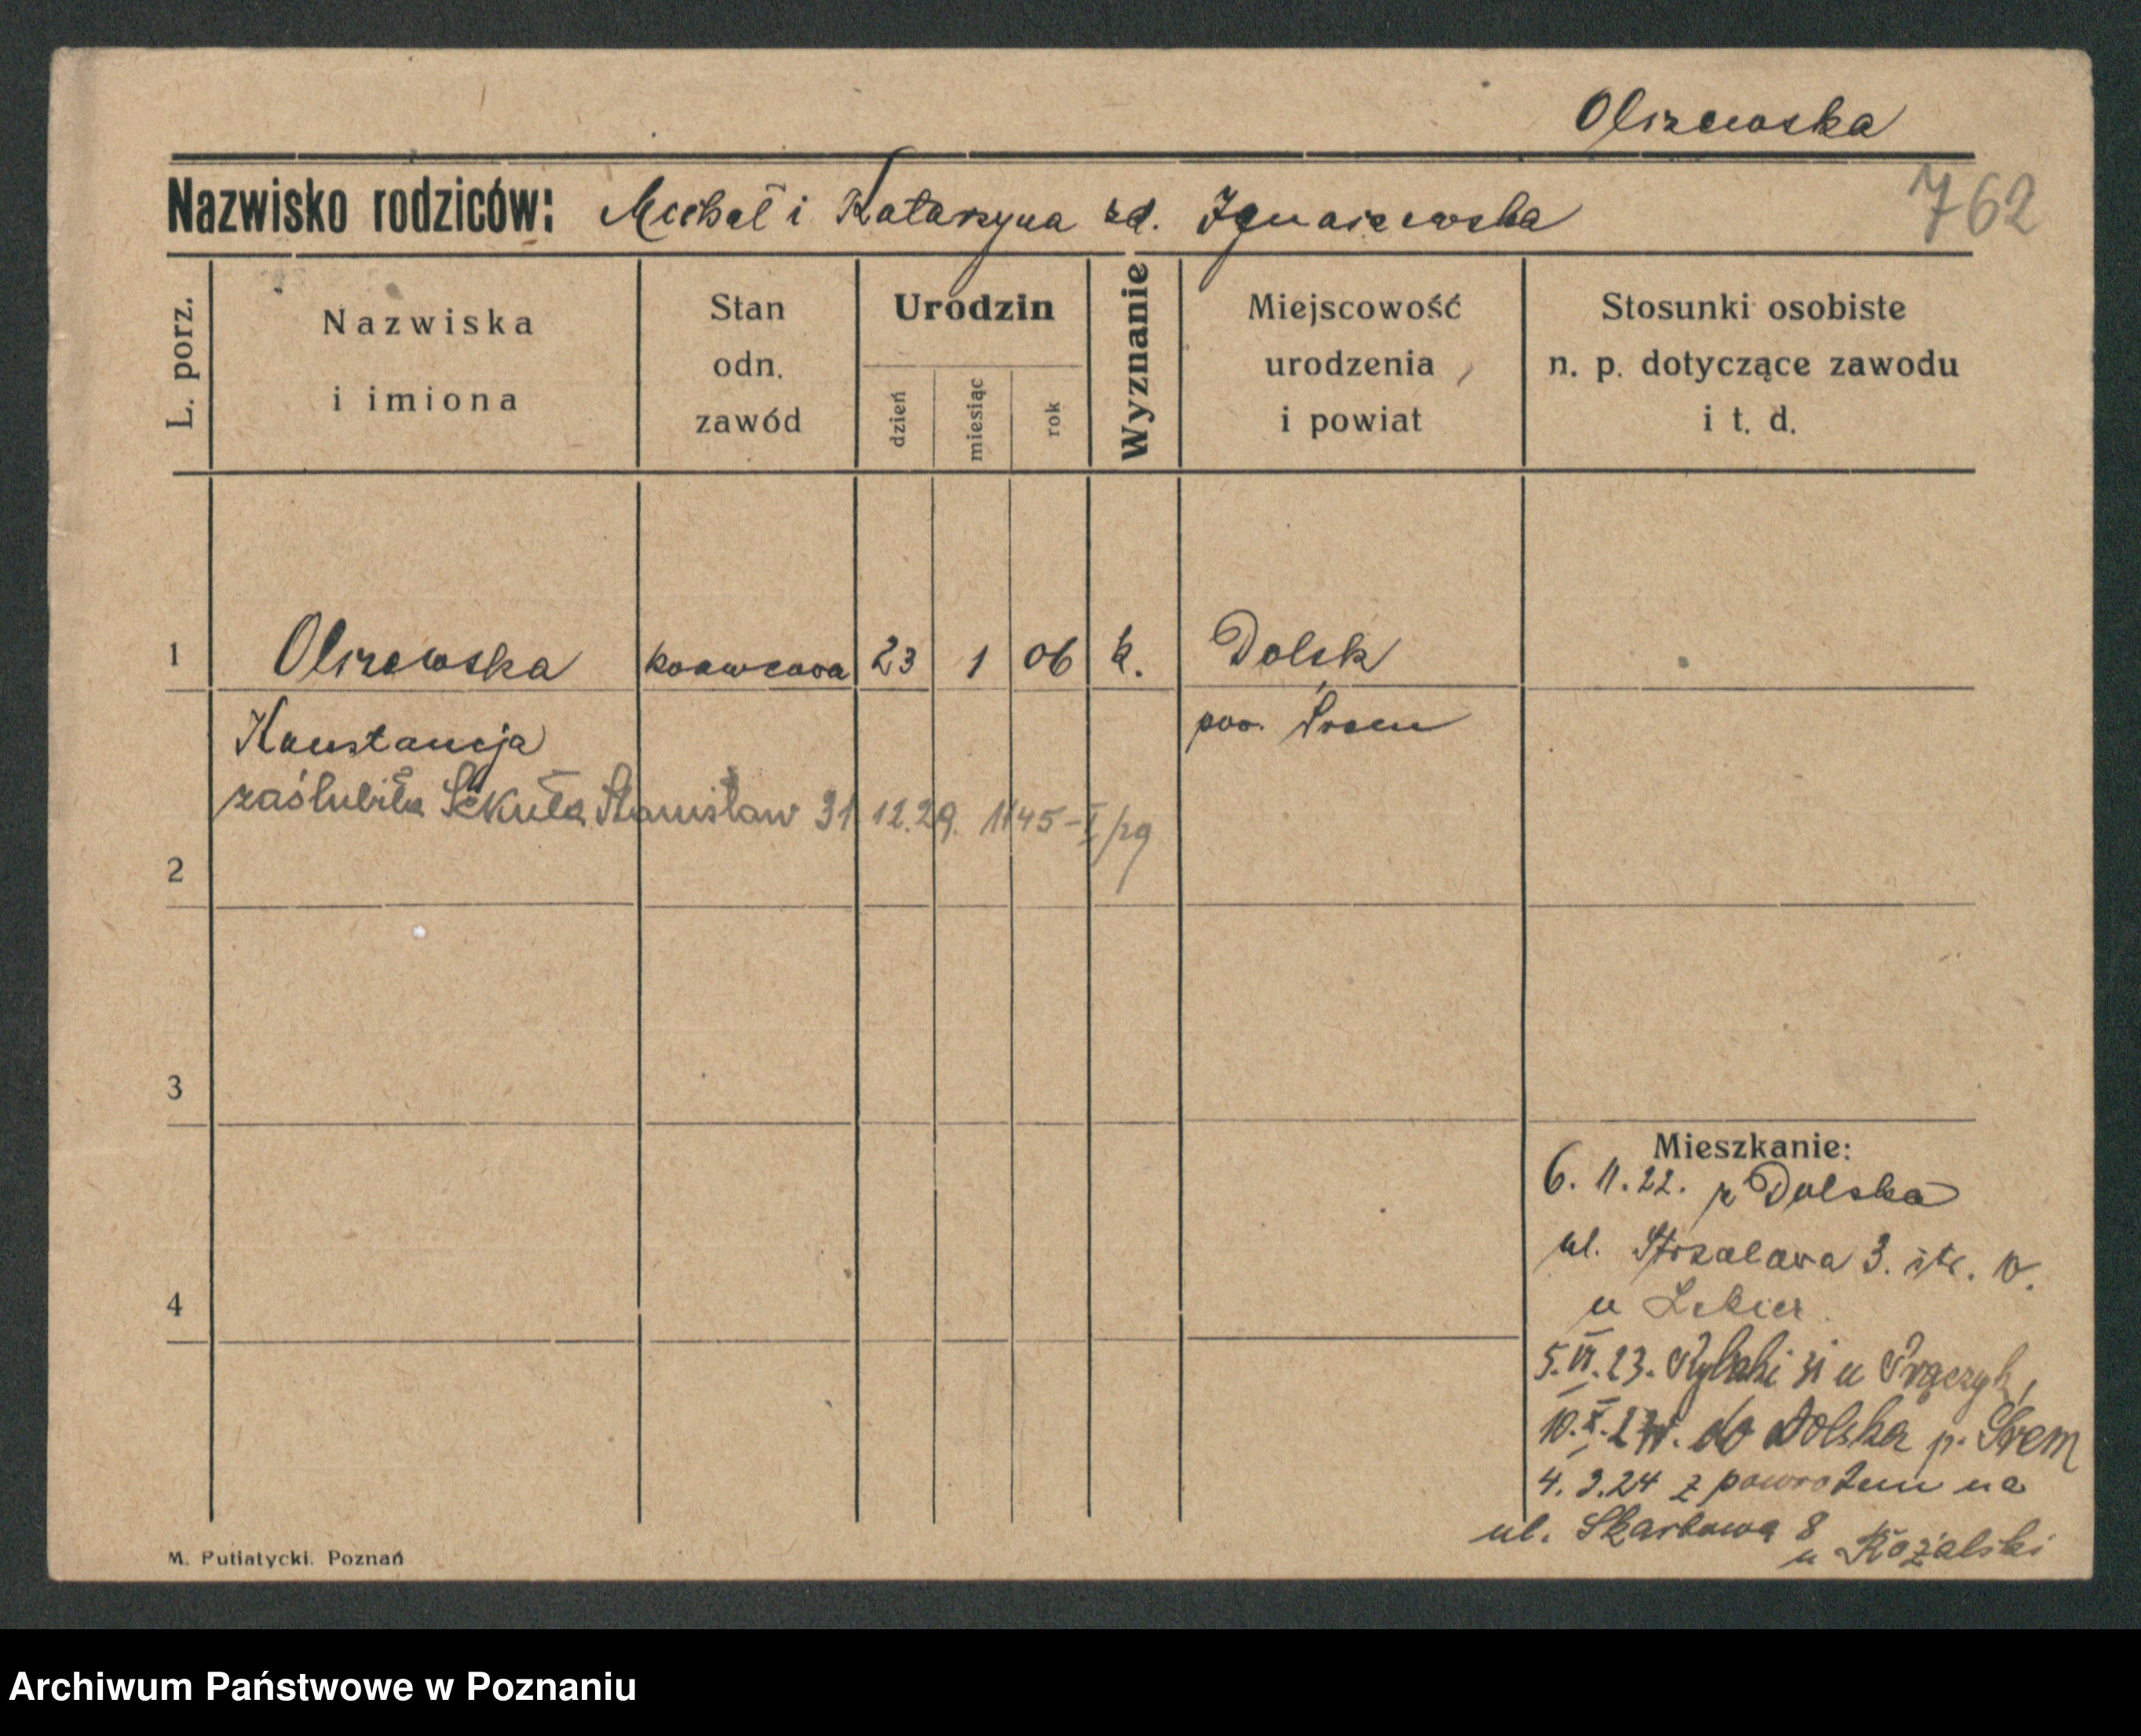 Olszewska
Nazwisko rodziców: Michał i Katarzyna zd. Ignaszewska
762
L. porz.
Nazwiska
i imiona
Stan
odn.
zawód
Urodzin
dzień
miesiąc
rok
Wyznanie
Miejscowość
urodzenia
i powiat
Stosunki osobiste
n. p. dotyczące zawodu
i t. d.
1 Olszewska krawcowa 23 1 06 k. Dolsk
Konstancja pow. Śrem
zaślubiła Sekuła Stanisław 31 12.29. 1145-I/29
2
3
4
Mieszkanie:
6. 11. 22. z Dolska
ul. Strzałowa 3. ptr. w.
u
5.VI.23. Rybaki 31 u
10.X.23. do Dolska p. Śrem
4. 3.24 z powrotem na
ul. Skarbowa 8
u Koźalski
M. Putiatycki. Poznań
Archiwum Państwowe w Poznaniu